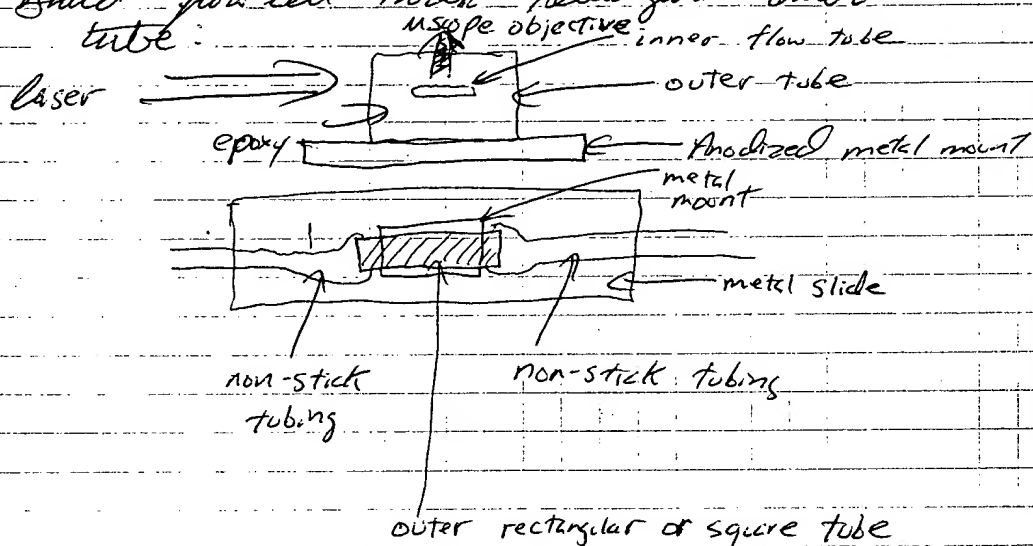 flow cell
tube:
uscope objective
inner flow tube
laser
outer tube
epoxy
Anodized metal mount
metal
mount
metal slide
non-stick
tubing
non-stick tubing
outer rectangular or squire tube